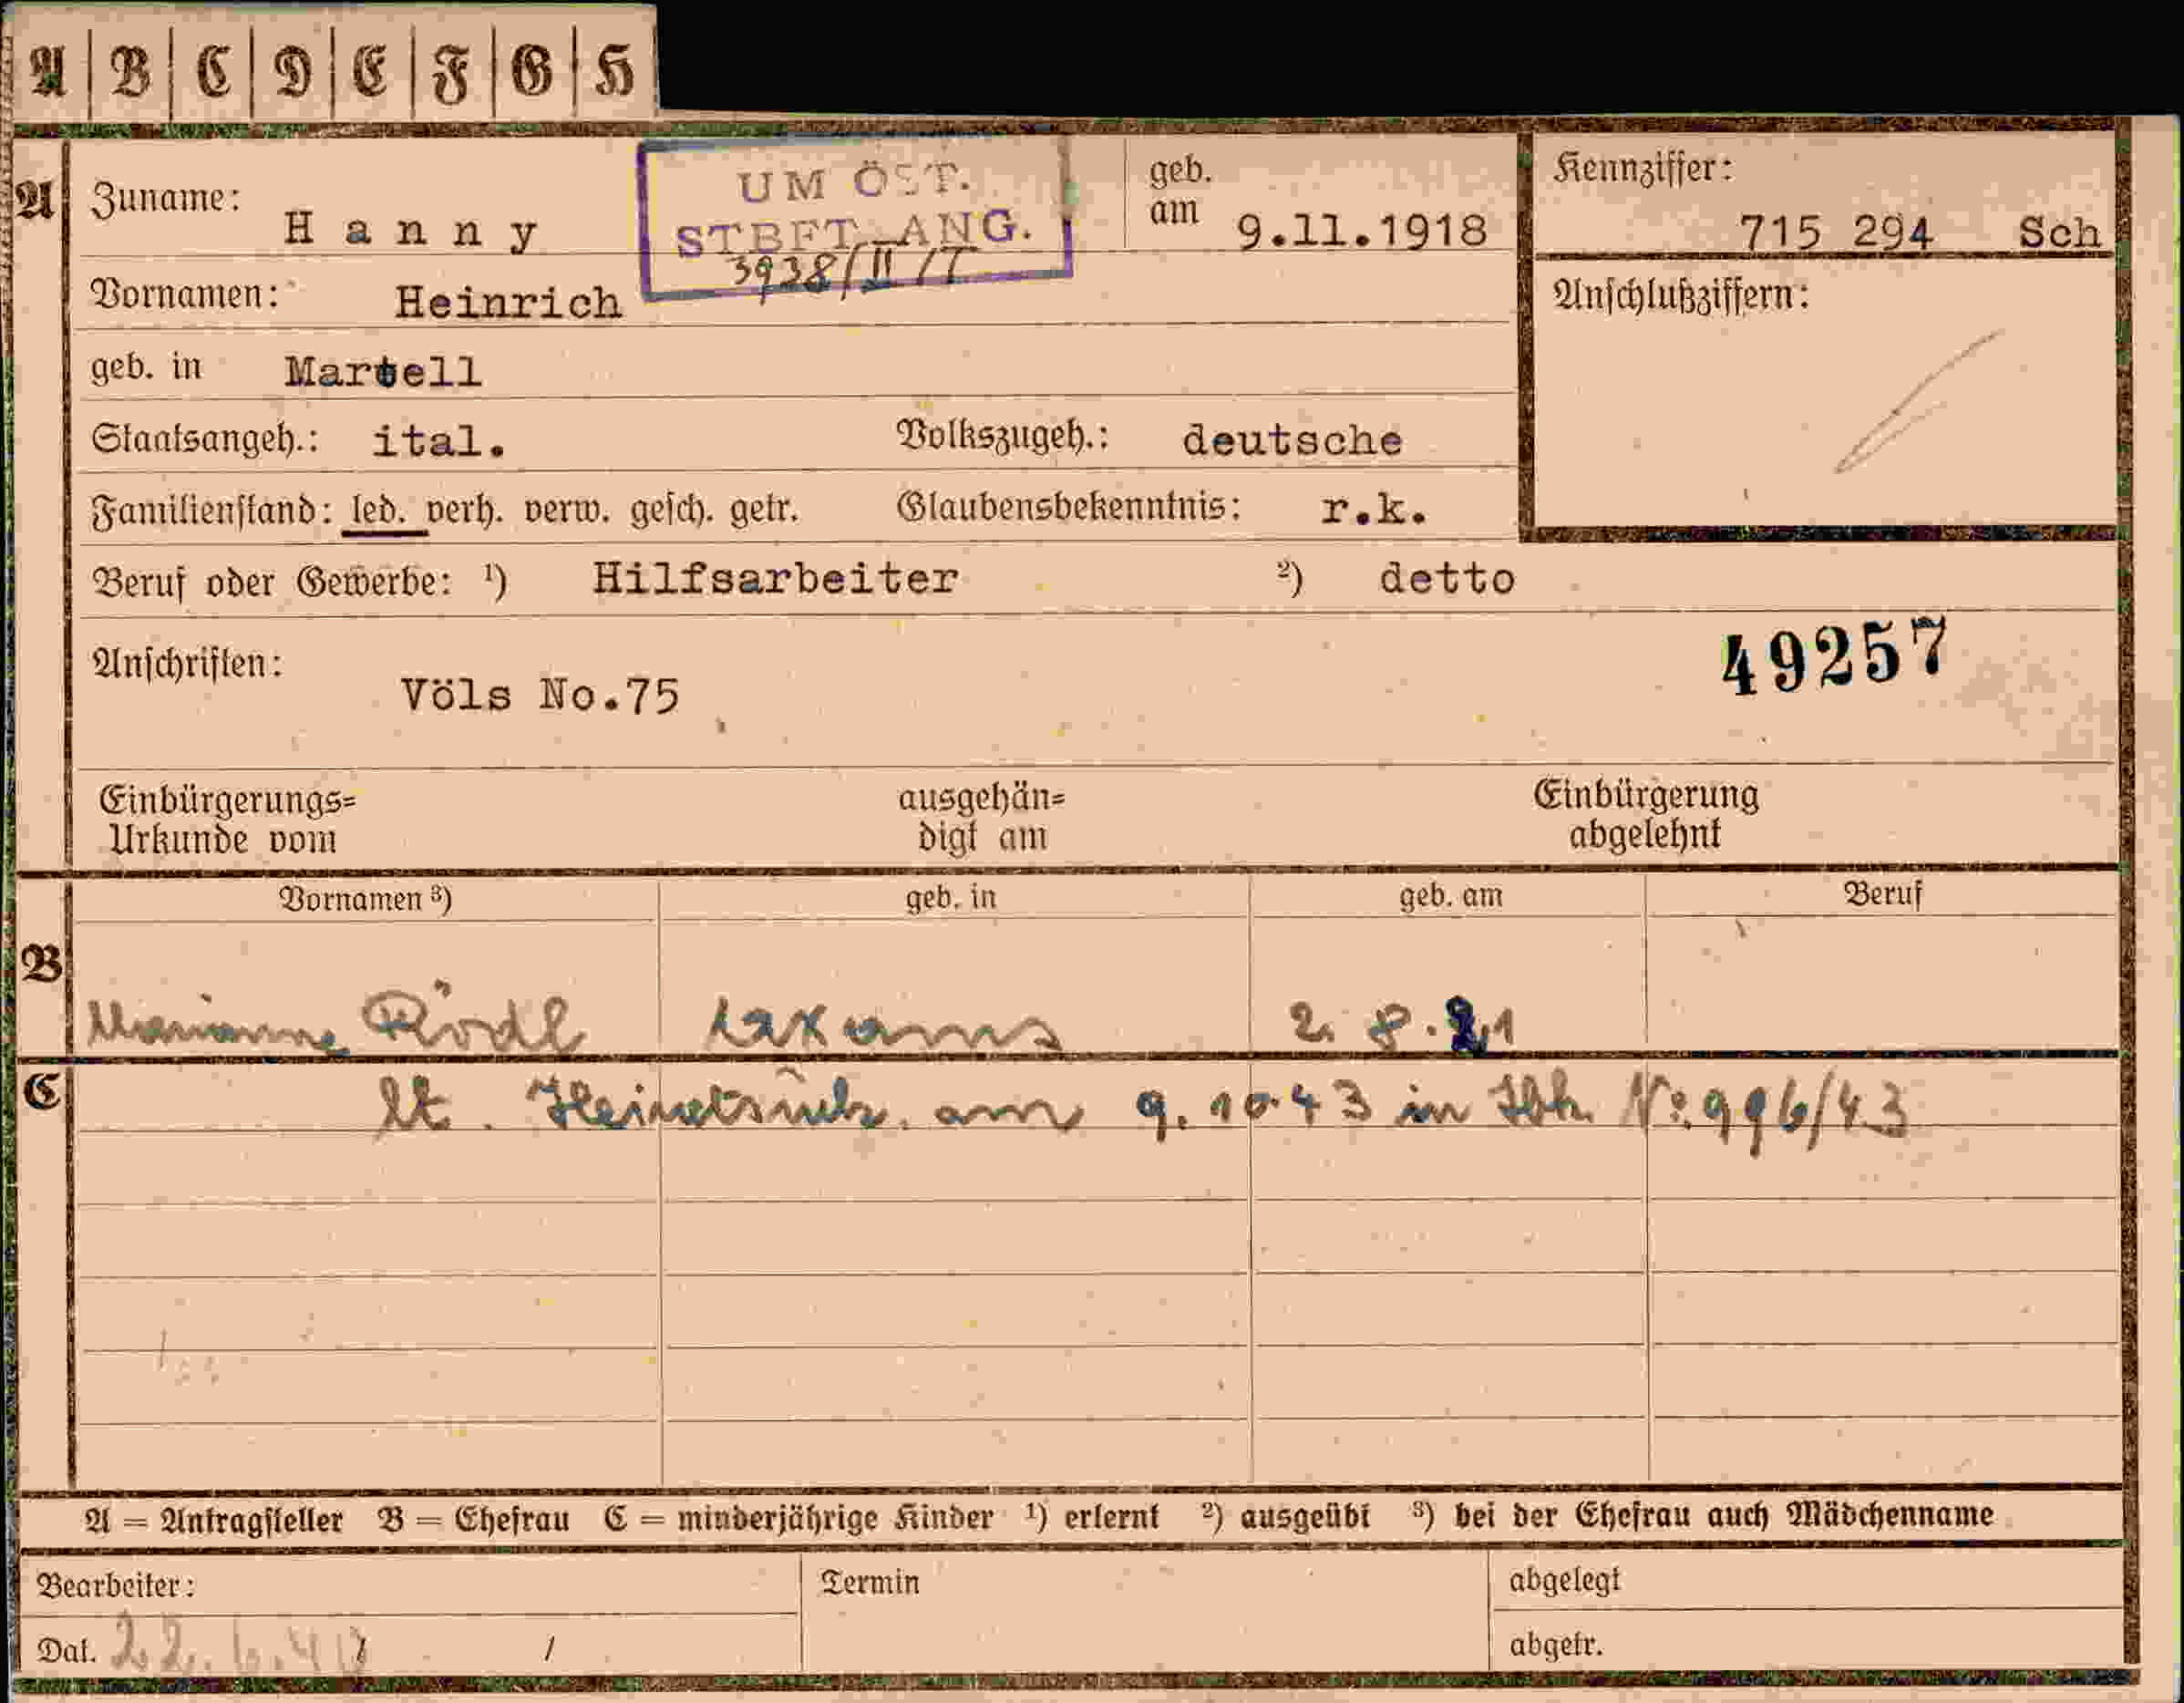 A | B | C | D | E | F | G | H
A Zuname: Hanny
UM ÖST.
STBFT. ANG.
3938/II/T
geb. am 9.11.1918
Kennziffer: 715 294 Sch
Vornamen: Heinrich
Anschlußziffern:
geb. in Martell
Staatsangeh.: ital. Volkszugeh.: deutsche
Familienstand: led. verh. verw. gesch. getr. Glaubensbekenntnis: r.k.
Beruf oder Gewerbe: ¹) Hilfsarbeiter ²) detto
49257
Anschriften: Völs No.75
Einbürgerungs= ausgehän= Einbürgerung
Urkunde vom digt am abgelehnt
Vornamen ³) geb. in geb. am Beruf
B
Marianne Rödl Laxams 2. 8. 21
C lt. am 9.10.43 in Ibk. No. 996/43
A = Antragsteller B = Ehefrau C = minderjährige Kinder ¹) erlernt ²) ausgeübt ³) bei der Ehefrau auch Mädchenname
Bearbeiter: Termin abgelegt
Dat. 22.6.40 / / abgetr.